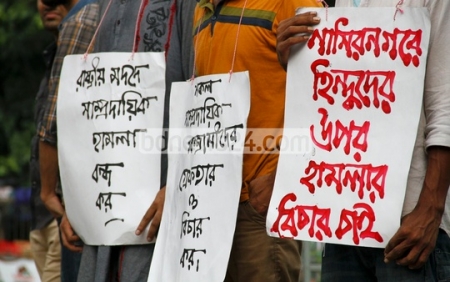 রাষ্ট্রীয় মদদে
সাম্প্রদায়িক
হামলা
বন্ধ
কর
সকল
সাম্প্রদায়িক
সন্ত্রাসীদের
গ্রেফতার
ও
বিচার
কর।
নাসিরনগরে
হিন্দুদের
উপর
হামলার
বিচার চাই